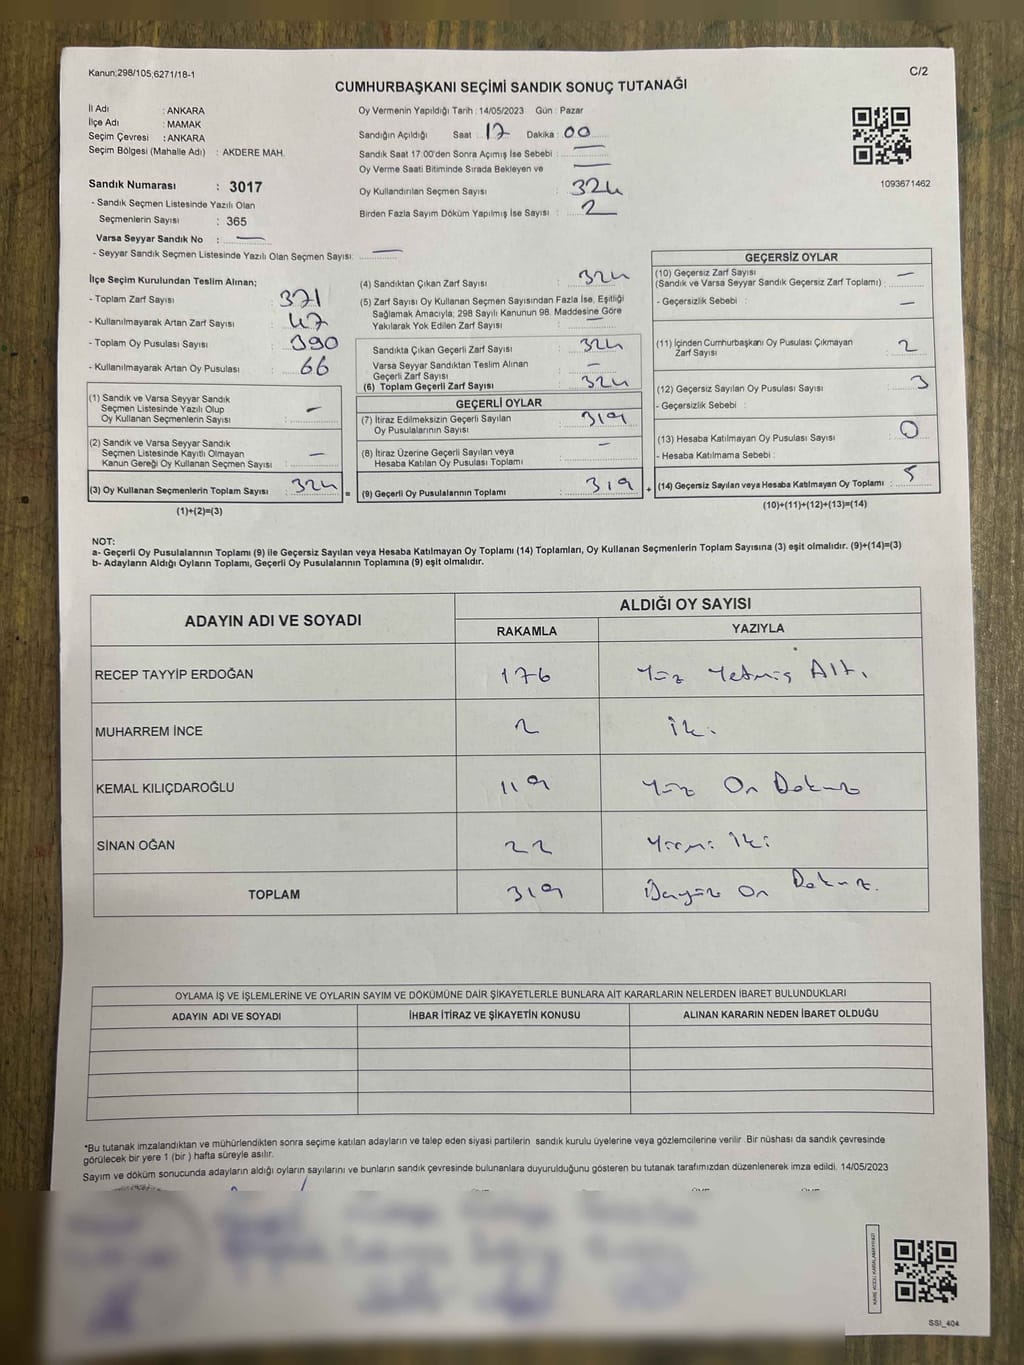 Kanun;298/105;6271/18-1
C/2
CUMHURBAŞKANI SEÇİMİ SANDIK SONUÇ TUTANAĞI
İl Adı : ANKARA
İlçe Adı : MAMAK
Seçim Çevresi : ANKARA
Seçim Bölgesi (Mahalle Adı) : AKDERE MAH.
Oy Vermenin Yapıldığı Tarih : 14/05/2023 Gün : Pazar
Sandığın Açıldığı Saat : 17 Dakika : 00
Sandık Saat 17.00'den Sonra Açımış İse Sebebi : —
Oy Verme Saati Bitiminde Sırada Bekleyen ve —
Oy Kullandırılan Seçmen Sayısı 324
Birden Fazla Sayım Döküm Yapılmış İse Sayısı : 2
1093671462
Sandık Numarası : 3017
- Sandık Seçmen Listesinde Yazılı Olan
Seçmenlerin Sayısı : 365
Varsa Seyyar Sandık No : —
- Seyyar Sandık Seçmen Listesinde Yazılı Olan Seçmen Sayısı: —
İlçe Seçim Kurulundan Teslim Alınan;
- Toplam Zarf Sayısı : 371
- Kullanılmayarak Artan Zarf Sayısı : 47
- Toplam Oy Pusulası Sayısı : 390
- Kullanılmayarak Artan Oy Pusulası : 66
(1) Sandık ve Varsa Seyyar Sandık
Seçmen Listesinde Yazılı Olup
Oy Kullanan Seçmenlerin Sayısı : —
(2) Sandık ve Varsa Seyyar Sandık
Seçmen Listesinde Kayıtlı Olmayan
Kanun Gereği Oy Kullanan Seçmen Sayısı : —
(3) Oy Kullanan Seçmenlerin Toplam Sayısı : 324 =
(1)+(2)=(3)
(4) Sandıktan Çıkan Zarf Sayısı : 324
(5) Zarf Sayısı Oy Kullanan Seçmen Sayısından Fazla İse, Eşitliği
Sağlamak Amacıyla; 298 Sayılı Kanunun 98. Maddesine Göre
Yakılarak Yok Edilen Zarf Sayısı : —
Sandıkta Çıkan Geçerli Zarf Sayısı : 324
Varsa Seyyar Sandıktan Teslim Alınan
Geçerli Zarf Sayısı : —
(6) Toplam Geçerli Zarf Sayısı : 324
GEÇERLİ OYLAR
(7) İtiraz Edilmeksizin Geçerli Sayılan
Oy Pusulalarının Sayısı : 319
(8) İtiraz Üzerine Geçerli Sayılan veya
Hesaba Katılan Oy Pusulası Toplamı : —
(9) Geçerli Oy Pusulalarının Toplamı : 319 +
GEÇERSİZ OYLAR
(10) Geçersiz Zarf Sayısı
(Sandık ve Varsa Seyyar Sandık Geçersiz Zarf Toplamı) : —
- Geçersizlik Sebebi : —
(11) İçinden Cumhurbaşkanı Oy Pusulası Çıkmayan
Zarf Sayısı : 2
(12) Geçersiz Sayılan Oy Pusulası Sayısı : 3
- Geçersizlik Sebebi :
(13) Hesaba Katılmayan Oy Pusulası Sayısı : 0
- Hesaba Katılmama Sebebi :
(14) Geçersiz Sayılan veya Hesaba Katılmayan Oy Toplamı : 5
(10)+(11)+(12)+(13)=(14)
NOT:
a- Geçerli Oy Pusulalarının Toplamı (9) ile Geçersiz Sayılan veya Hesaba Katılmayan Oy Toplamı (14) Toplamları, Oy Kullanan Seçmenlerin Toplam Sayısına (3) eşit olmalıdır. (9)+(14)=(3)
b- Adayların Aldığı Oyların Toplamı, Geçerli Oy Pusulalarının Toplamına (9) eşit olmalıdır.
ADAYIN ADI VE SOYADI
ALDIĞI OY SAYISI
RAKAMLA YAZIYLA
RECEP TAYYİP ERDOĞAN 176 Yüz Yetmiş Altı
MUHARREM İNCE 2 İki
KEMAL KILIÇDAROĞLU 119 Yüz On Dokuz
SİNAN OĞAN 22 Yirmi İki
TOPLAM 319 Üçyüz On Dokuz.
OYLAMA İŞ VE İŞLEMLERİNE VE OYLARIN SAYIM VE DÖKÜMÜNE DAİR ŞİKAYETLERLE BUNLARA AİT KARARLARIN NELERDEN İBARET BULUNDUKLARI
ADAYIN ADI VE SOYADI İHBAR İTİRAZ VE ŞİKAYETİN KONUSU ALINAN KARARIN NEDEN İBARET OLDUĞU
*Bu tutanak imzalandıktan ve mühürlendikten sonra seçime katılan adayların ve talep eden siyasi partilerin sandık kurulu üyelerine veya gözlemcilerine verilir. Bir nüshası da sandık çevresinde
görülecek bir yere 1 (bir ) hafta süreyle asılır.
Sayım ve döküm sonucunda adayların aldığı oyların sayılarını ve bunların sandık çevresinde bulunanlara duyurulduğunu gösteren bu tutanak tarafımızdan düzenlenerek imza edildi. 14/05/2023
SSI_404